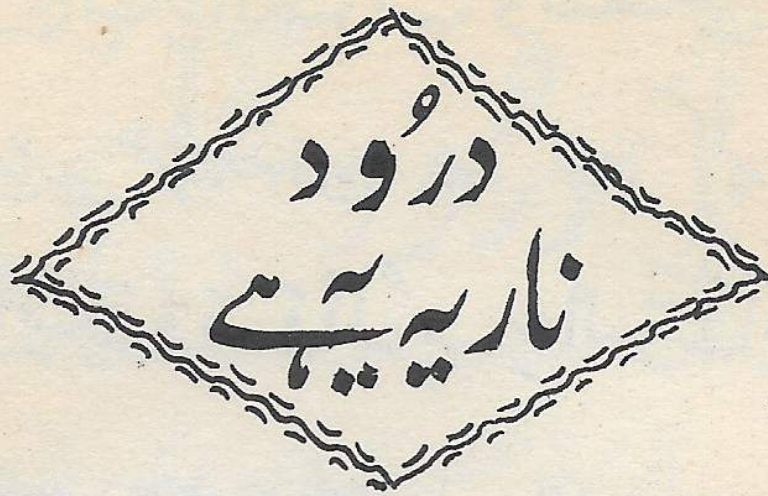 درُود
ناریہ یہ ہے